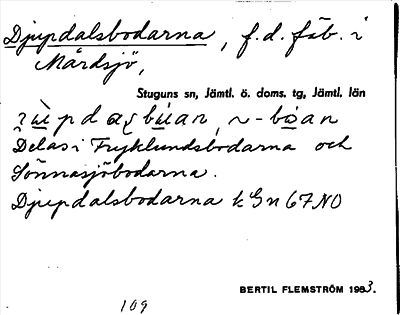 Djupdalsbodarna, f.d. fäb. i
Mårdsjö,
Stuguns sn, Jämtl. ö. doms. tg, Jämtl. län
Delas i Fryklundsbodarna och
Sönnasjöbodarna.
Djupdalsbodarna k Gn 67 NO
BERTIL FLEMSTRÖM 1983.
109